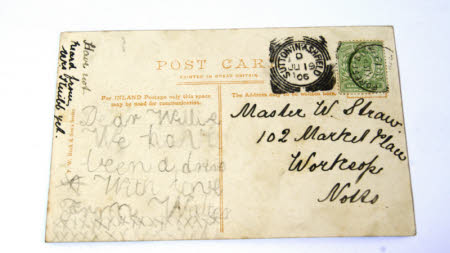 Have not
heard from
Mrs
yet.
POST CARD
PRINTED IN GREAT BRITAIN.
For INLAND Postage only this space
may be used for communication.
The Address only to be written here.
Dear Willie
We have
been a drive
With love
From Walter
SUTTON-IN-ASHFIELD
D
JU 19
05
Master W. Straw.
102 Market Place
Worksop
Notts